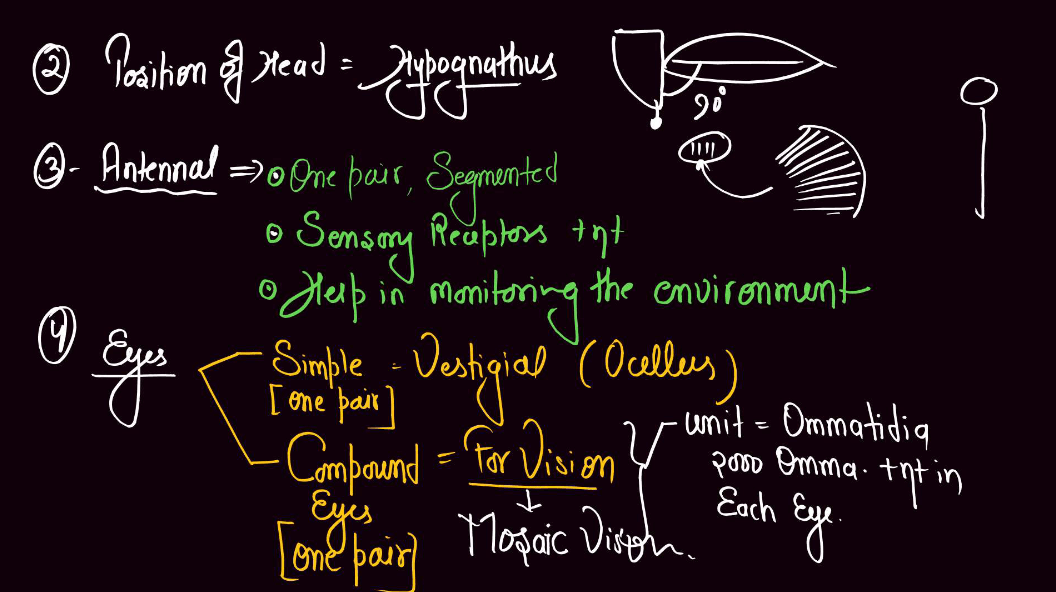 ② Position of Head = Hypognathus
90°
③- Antennal ⇒ ⊙ One pair, Segmented
⊙ Sensory Receptors +nt
⊙ Help in monitoring the environment
④ Eyes
Simple = Vestigial (Ocellus)
[one pair]
Compound = For Vision
Eyes
[one pair]
↓
Mosaic Vision.
unit = Ommatidia
2000 Omma. +nt in
Each Eye.